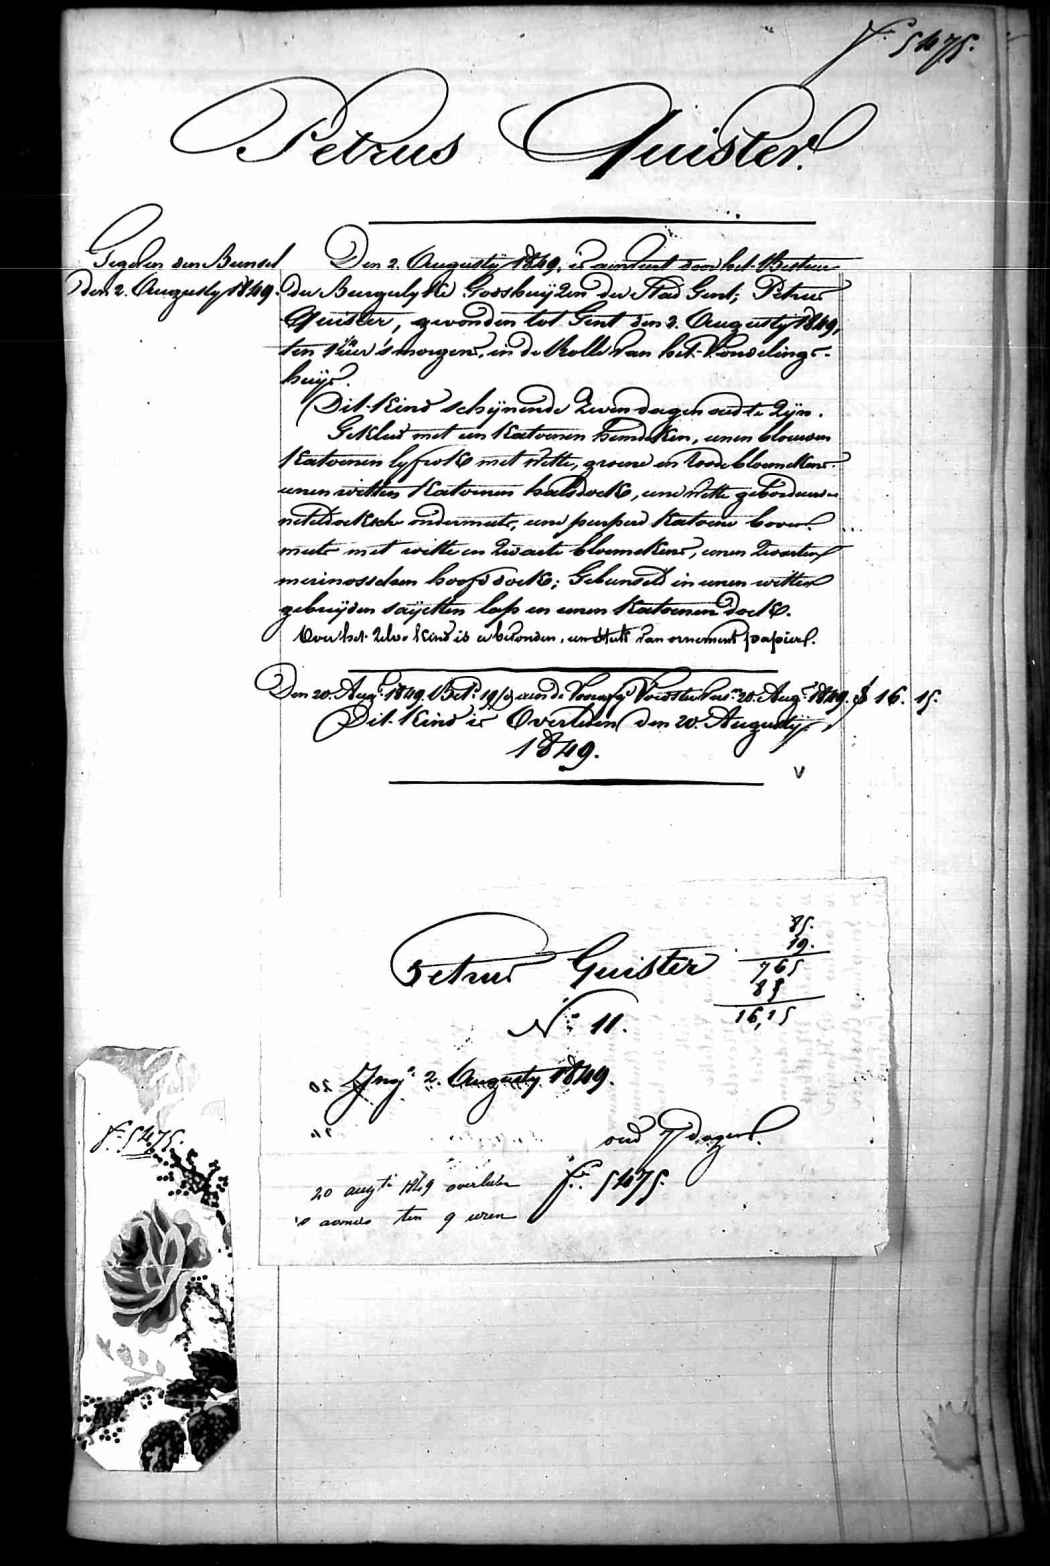 f° 5475.
Petrus Quister.
Gegeven den Bunsel
den 2. Augusty 1849.
Den 2. Augusty 1849, is aenveert door het Bestuer
der Burgelyke Godshuyzen der Stad Gent; Petrus
Quister, gevonden tot Gent den 2. Augusty 1849,
ten 1 uer 's morgens, in de Rolle van het Vondelings-
huys.
Dit Kind schynende zeven dagen oud te zyn.
Gekleed met een Katoenen hemdeken, eenen blouwen
Katoenen lyfrok met witte, groene en roode bloemekens
eenen witten Katoenen halsdoek, eene witte geborduerde
neteldoeksche ondermuts, eene purpere Katoene boven
muts met witte en zwarte bloemekens, eenen zwarten
merinosschen hoofddoek; Gebunseld in eenen witten
gebreyden sayetten lap en eenen Katoenen doek.
Over het zelve Kind is er bevonden, een stuk van ornement papier.
Den 20. Augt 1849. Bet. 19 den 20. Augt 1849. f 16. 15.
Dit Kind is Overleden den 20. Augusty
1849.
V
85.
19.
765
85
16,15
Petrus Quister
N° 11.
Ingn 2. Augusty 1849.
oud 7 dagen.
20 augti 1849 overleden
's avonds ten 9 uren
f° 5475.
f° 5475.